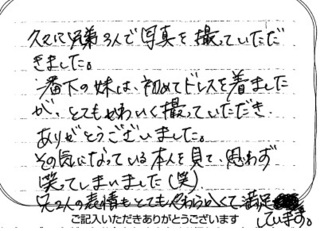 久々に兄弟3人で写真を撮っていただ
きました。
一番下の妹は、初めてドレスを着ました
が、とてもかわいく撮っていただき
ありがとうございました。
その気になっている本人を見て、思わず
笑ってしまいました(笑)
兄2人の表情もとてもやわらかくて満足
しています。
ご記入いただきありがとうございます